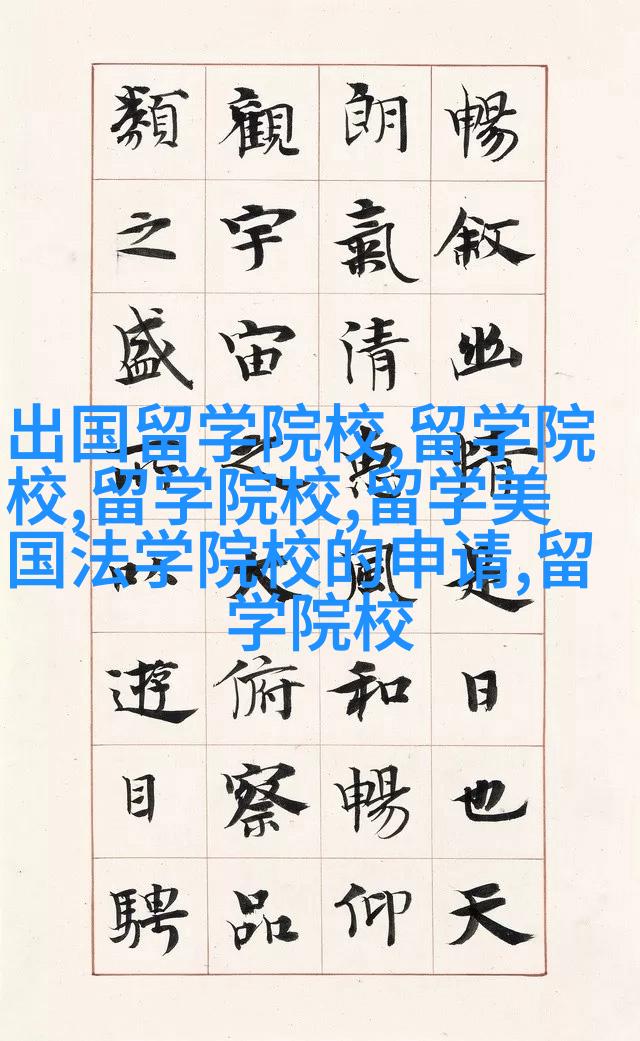 暢敘幽情是日也天
朗氣清惠風和暢仰
觀宇宙之大俯察品
類之盛所以遊目騁
出国留学院校,留学院
校,留学院校,留学美
国法学院校的申请,留
学院校